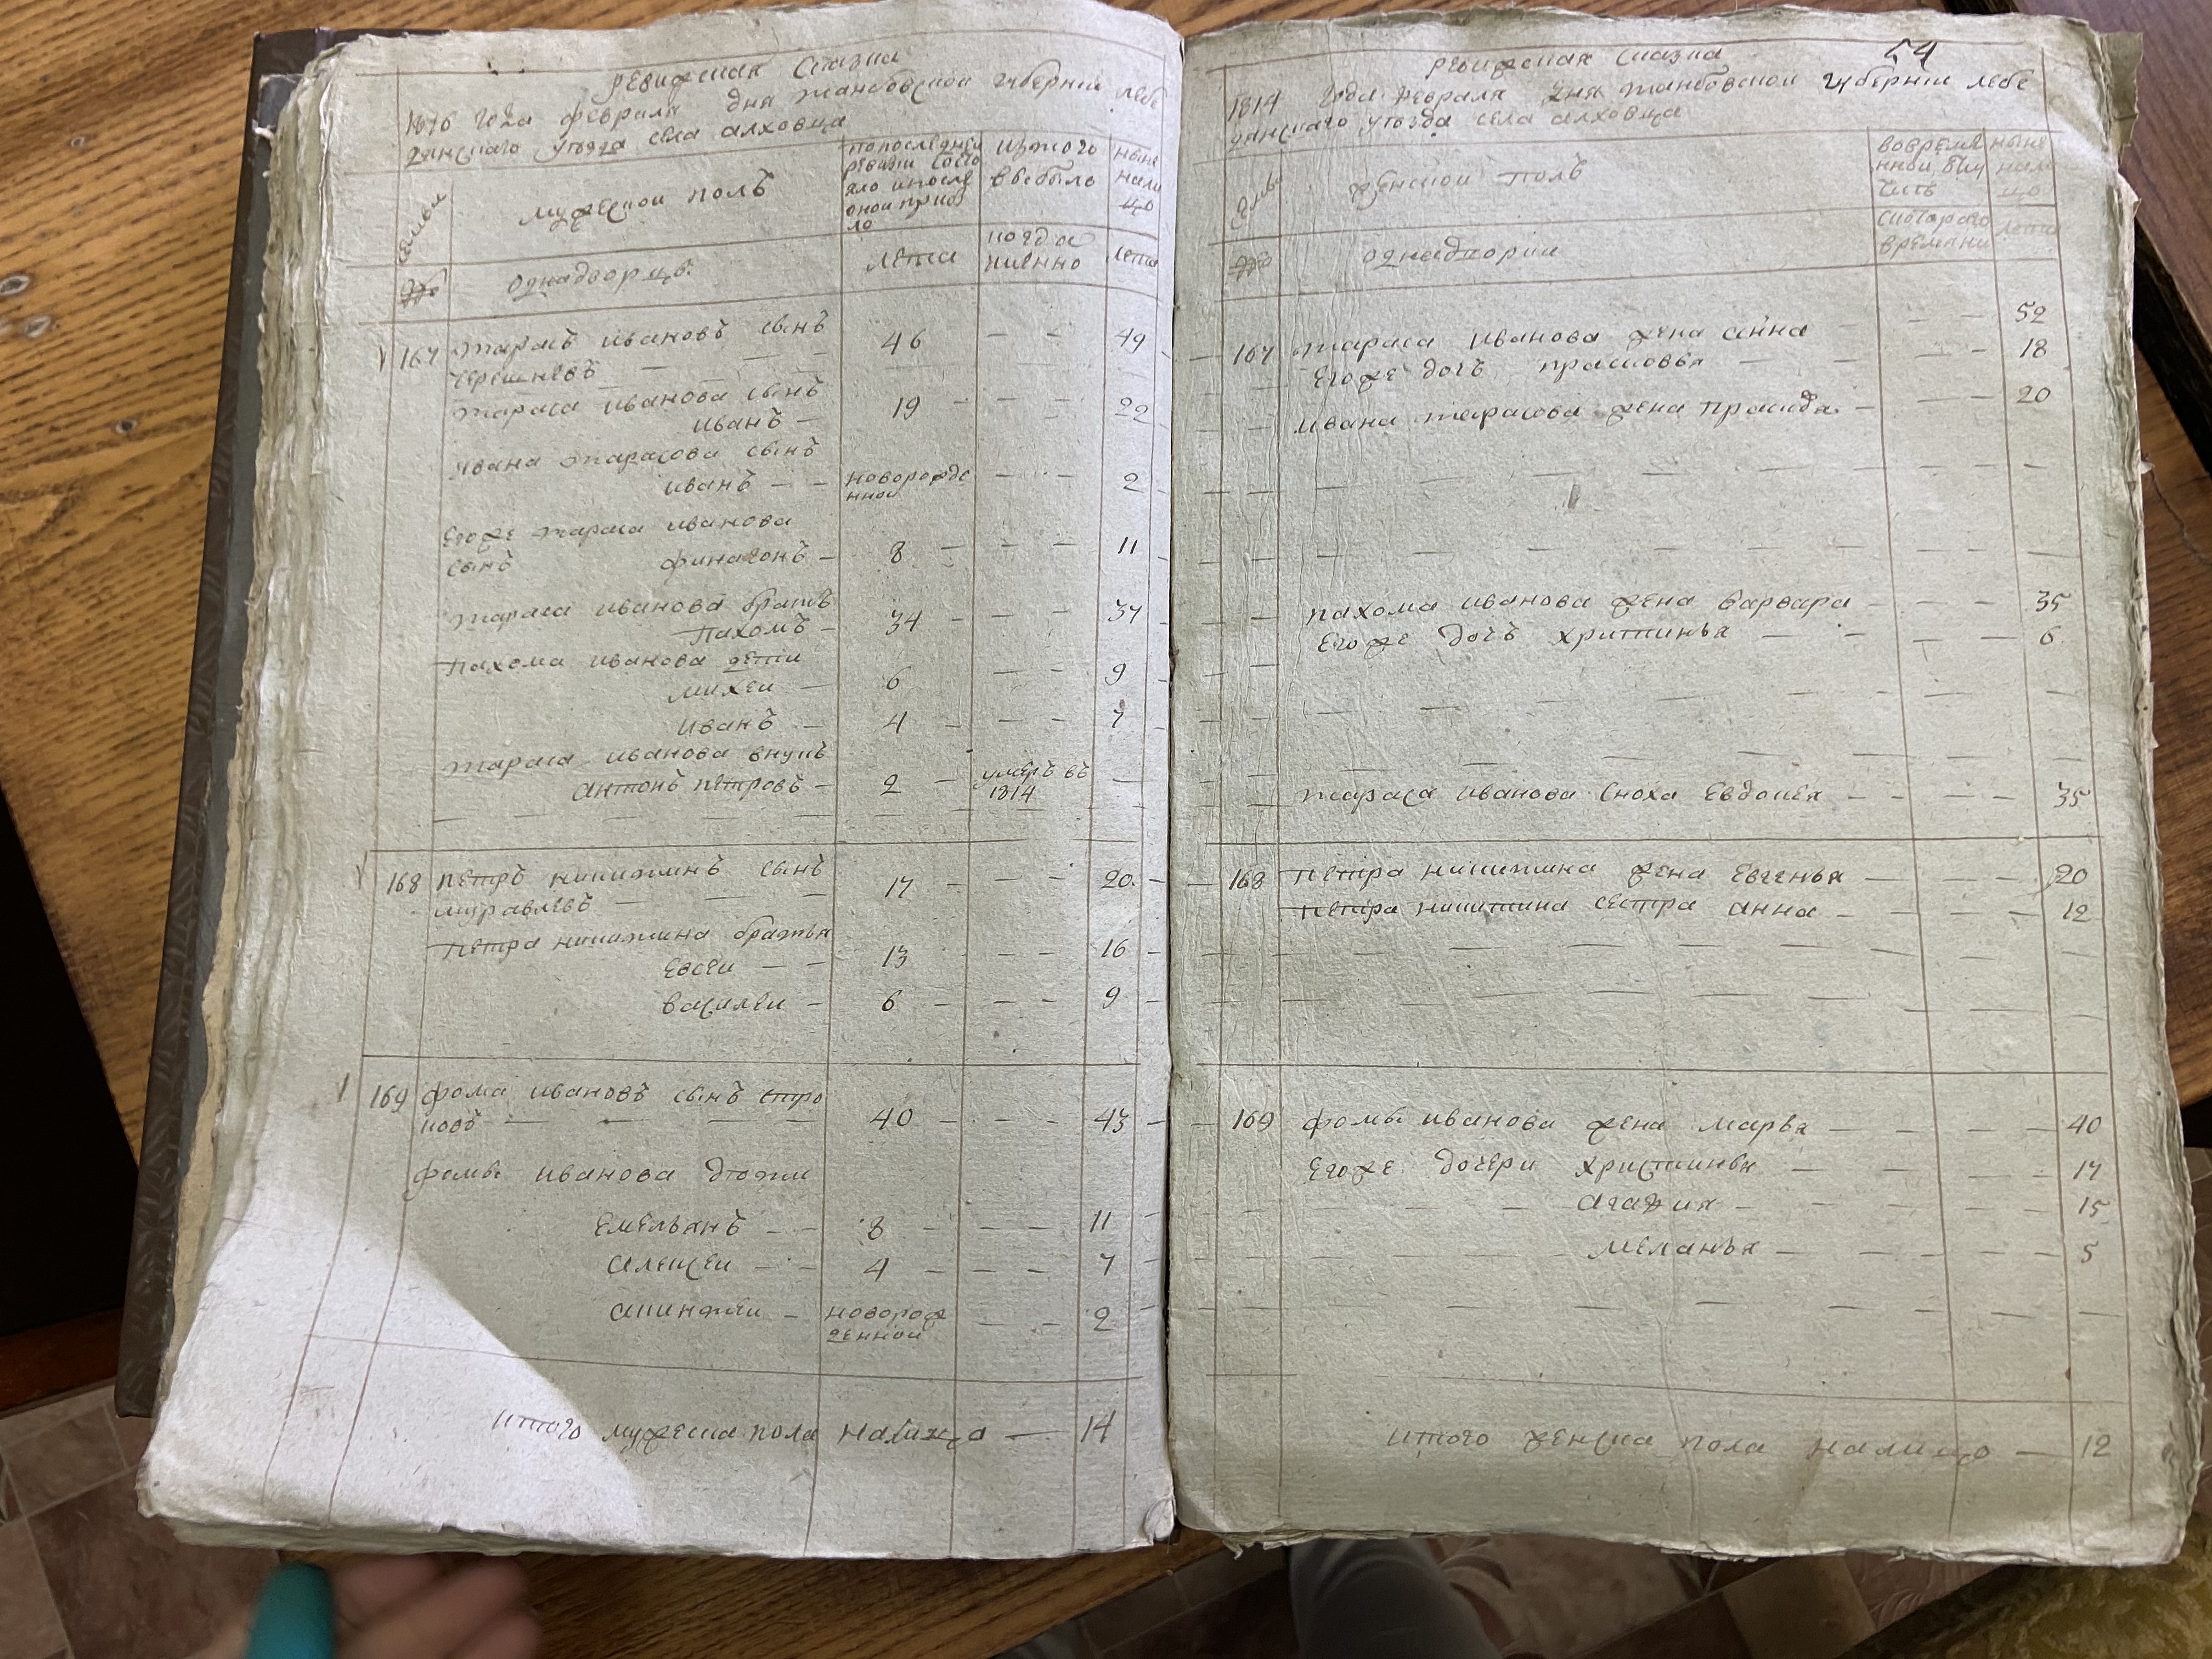 ревижская сказка
1816 года февраля дня танбовской губернии лебе
дянского уезда села алховца
семьи
мужеской полъ
попоследней
ревизии состо
яло ипосле
оной прибы
ло
изтого
выбыло
ныне
нали
цо
№
однадворцы
лета
когда
имянно
лета
167 тарасъ ивановъ сынъ
черешневъ — — — 46 — — 49
тараса иванова сынъ
иванъ — 19 — — — 22
ивана тарасова сынъ
иванъ — — новорожде
нной — — 2
Егоже тараса иванова
сынъ финагонъ — 8 — — — 11
тараса иванова братъ
пахомъ — 34 — — 37
пахома иванова дети
михеи — 6 — — 9
иванъ — 4 — — — 7
тараса иванова внукъ
антонъ петровъ — 2 — умеръ въ
1814 —
168 петръ никитинъ сынъ
муравлевъ — — — 17 — — — 20
петра никитина братья
Евсеи — — 13 — — 16
василеи — 6 — — — 9
169 фома ивановъ сынъ стро
ковъ — — — — 40 — — — 43
фомы иванова дѣти
Емельянъ — — 8 — — — 11
алексеи — — 4 — — — 7
акинфеи — новорож
денной — — 2
итого мужеска пола налицо — 14
54
ревижская сказка
1814 года февраля дня танбовской губернии лебе
дянского уезда села алховца
семьи
женской полъ
вовремен
нной отлу
чке
ныне
нали
цо
№
однадворки
скоторого
времяни
лета
167 тараса иванова жена анна — — — 52
Егоже дочь прасковья — — — 18
ивана тарасова жена — — — 20
пахома иванова жена варвара — — — 35
Егоже дочь христинья — — — 6
тараса иванова сноха Евдокея — — — 35
168 петра никитина жена Евгенья — — — 20
петра никитина сестра анна — — — 12
169 фомы иванова жена марья — — — 40
Егоже дочери христинья — — — 17
агафия — — — 15
меланья — — — 5
итого женска пола налицо — 12